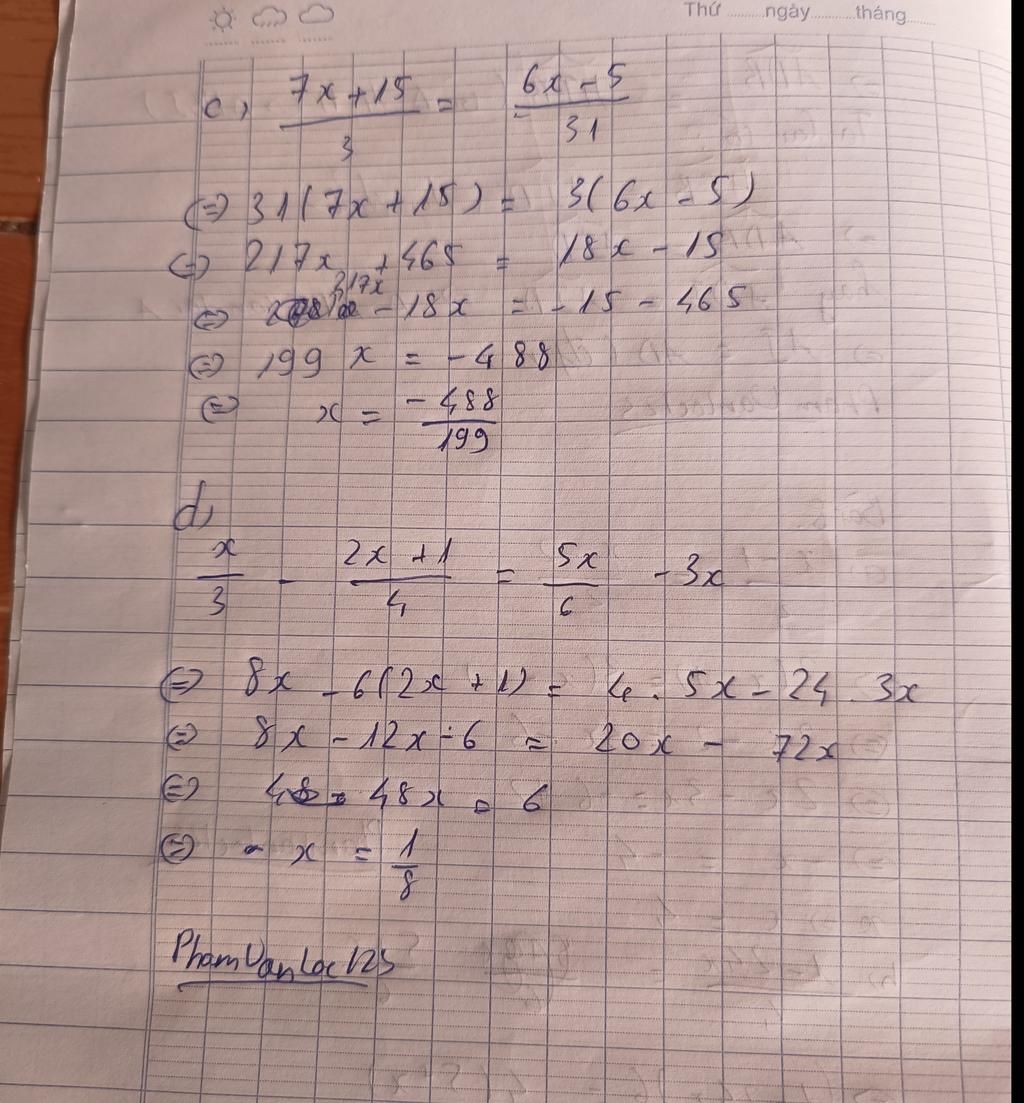 Thứ ........ngày..........tháng.......
c, (7x + 15)/3 = (6x - 5)/31
(=) 31(7x + 15) = 3(6x - 5)
(=) 217x + 465 = 18x - 15
(=) 217x - 18x = -15 - 465
(=) 199x = -488
(=) x = -488/199
d,
x/3 - (2x + 1)/4 = 5x/6 - 3x
(=) 8x - 6(2x + 1) = 4 . 5x - 24 . 3x
(=) 8x - 12x - 6 = 20x - 72x
(=) 48x = 6
(=) x = 1/8
PhamVanLoc125